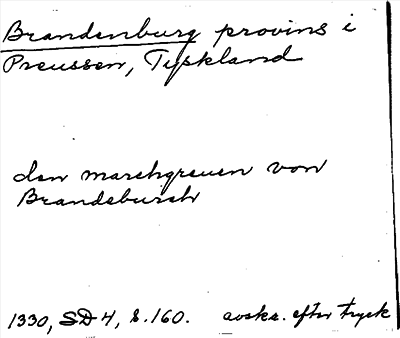 Brandenburg provins i
Preussen, Tyskland
den marchgreuen von
Brandeburch
1330, SD 4, s. 160. avskr. efter tryck